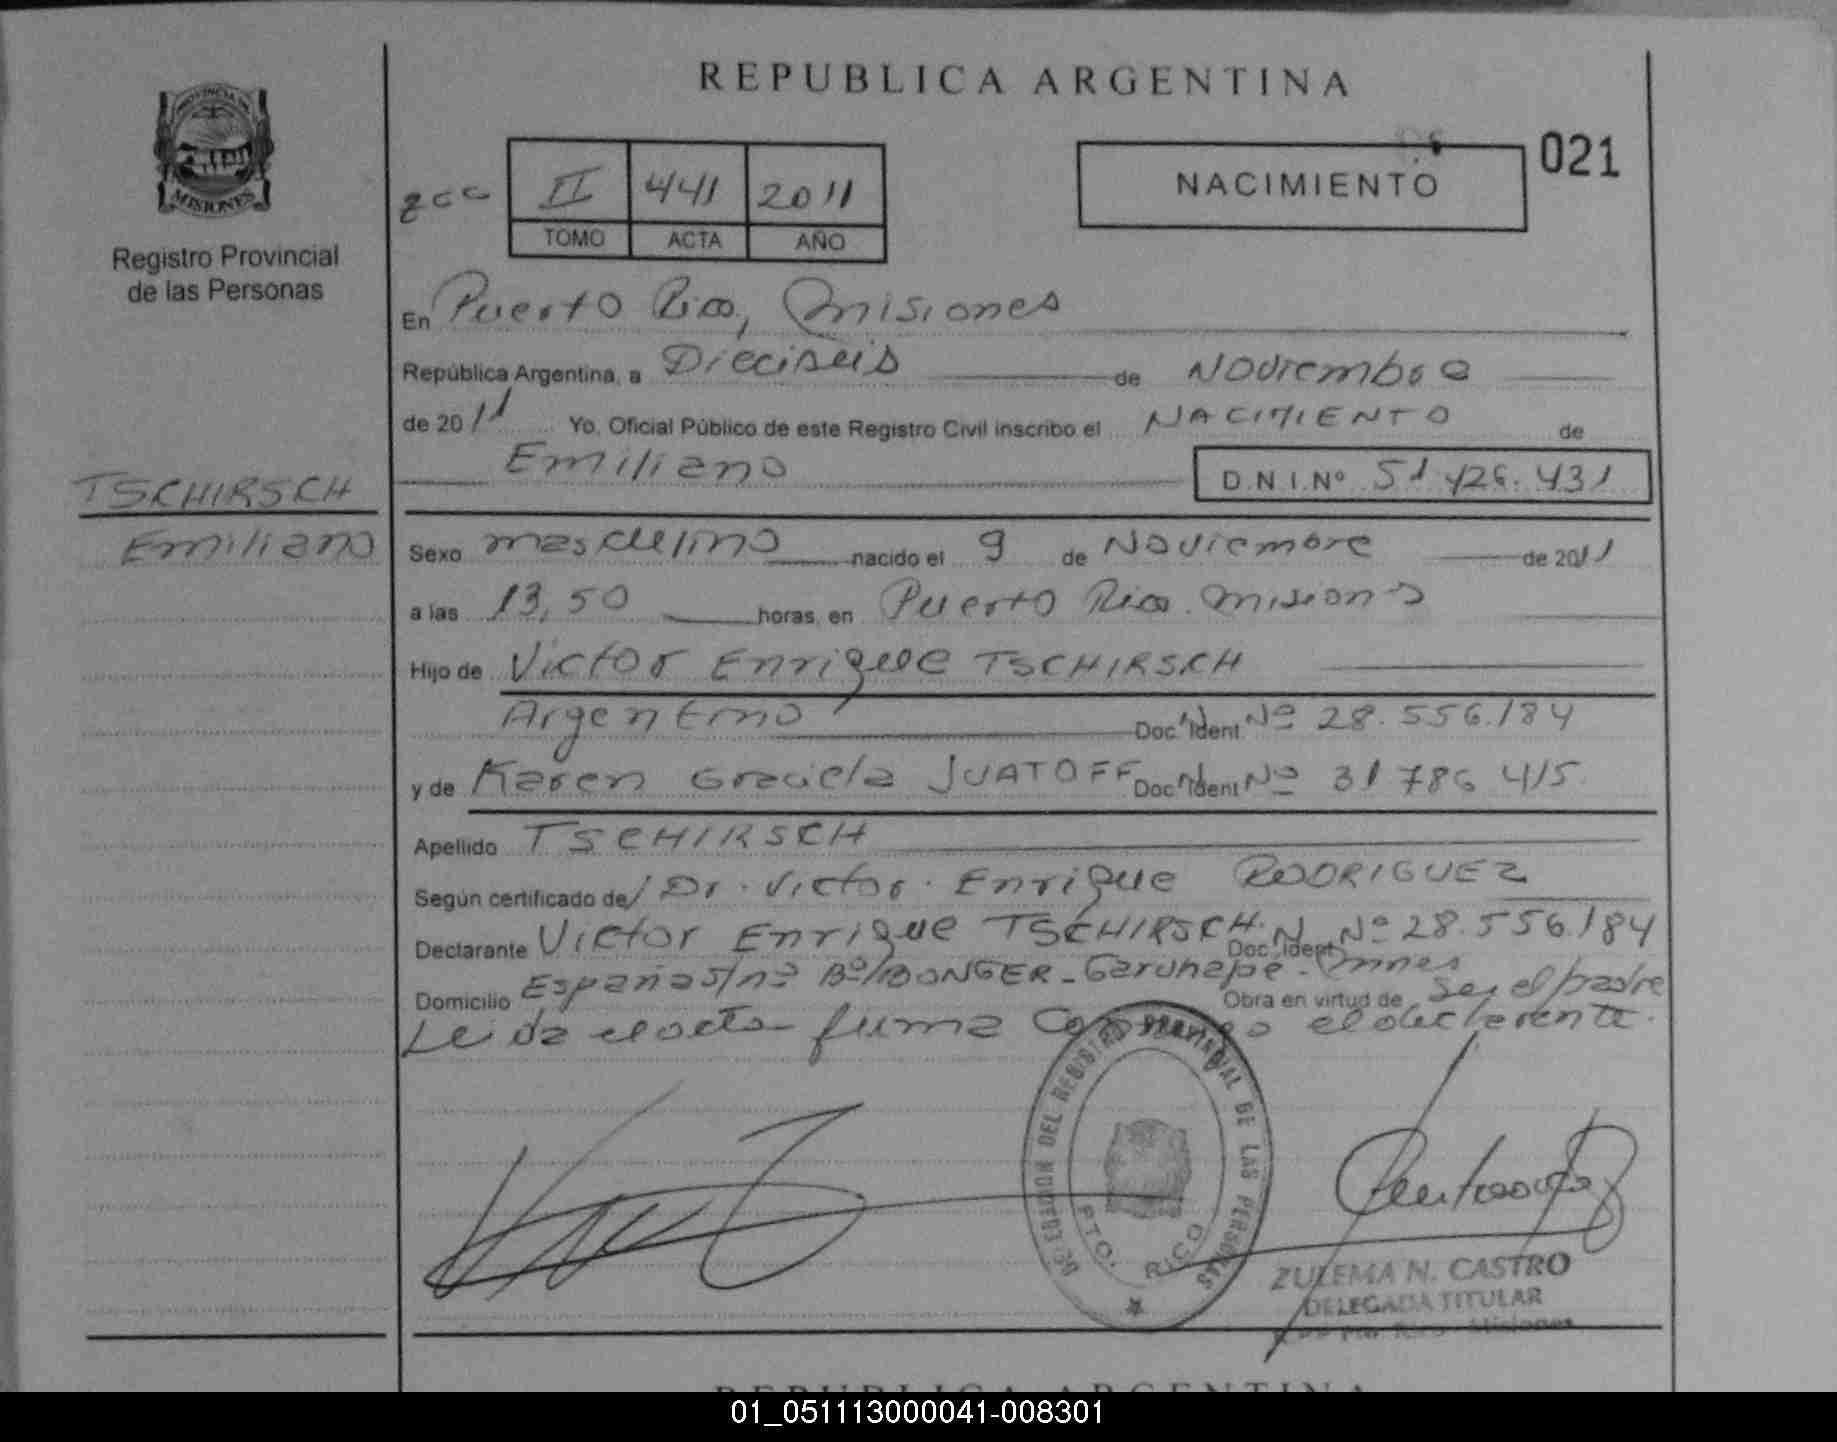 REPUBLICA ARGENTINA
PROVINCIA DE
MISIONES
Registro Provincial
de las Personas
II 441 2011
TOMO ACTA AÑO
NACIMIENTO
021
En Puerto Rico, Misiones
República Argentina, a Dieciseis de Noviembre
de 2011 Yo, Oficial Público de este Registro Civil inscribo el NACIMIENTO de
Emiliano D.N.I.Nº 51.426.431
TSCHIRSCH
Emiliano
Sexo masculino nacido el 9 de Noviembre de 2011
a las 13,50 horas, en Puerto Rico. Misiones
Hijo de Victor Enrique TSCHIRSCH
Argentino Doc. N. Ident. Nº 28.556.184
y de Karen Graciela JUATOFF Doc. N. Ident. Nº 31 786 415
Apellido TSCHIRSCH
Según certificado de/ Dr. Victor Enrique RODRIGUEZ
Declarante Victor Enrique TSCHIRSCH Doc. N. Ident. Nº 28.556.184
Domicilio España s/nº Bº/BONGER - Garuhape - Mnes Obra en virtud de ser el padre
Leida el acta firma conmigo el declarente.
DELEGACION DEL REGISTRO PROVINCIAL DE LAS PERSONAS
PTO. RICO
ZULEMA N. CASTRO
DELEGADA TITULAR
Pto. Rico - Misiones
REPUBLICA ARGENTINA
01_051113000041-008301